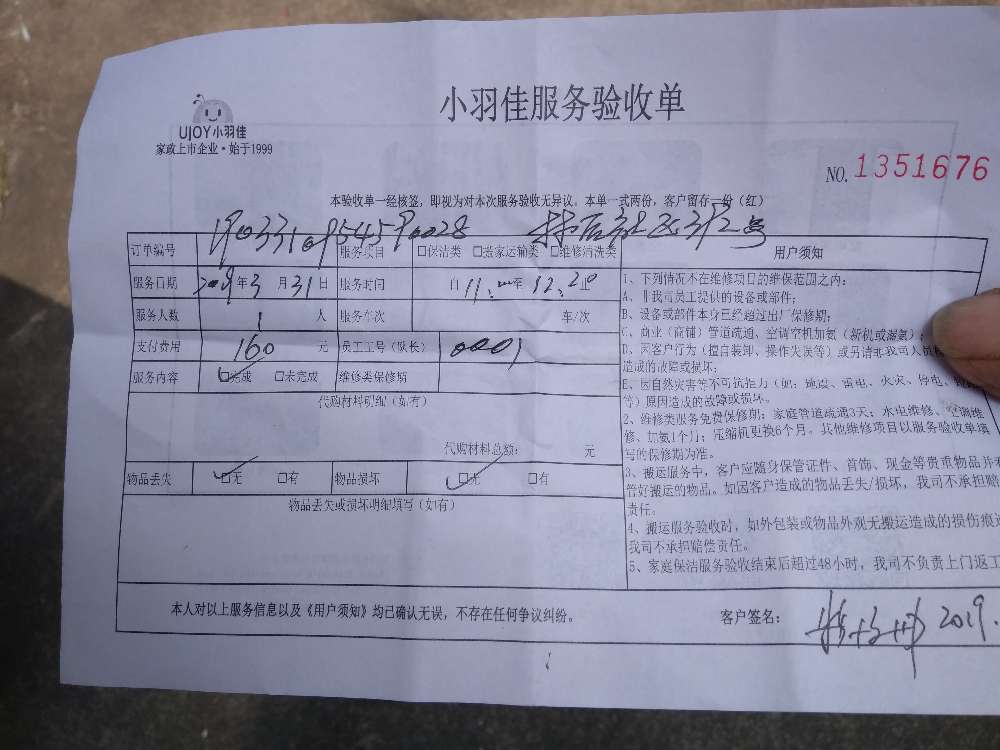 小羽佳服务验收单
UJOY小羽佳
家政上市企业·始于1999
NO.1351676
本验收单一经核签，即视为对本次服务验收无异议。本单一式两份，客户留存一份（红）
订单编号 服务项目 □保洁类 □搬家运输类 □维修清洗类 用户须知
服务日期 2019年3月31日 服务时间 自11:00至12:20止
服务人数 1人 服务车次 车/次
支付费用 160元 员工工号（队长） 0001
服务内容 □完成 □未完成 维修类保修期
代购材料明细（如有）
代购材料总额： 元
物品丢失 □无 □有 物品损坏 □无 □有
物品丢失或损坏明细填写（如有）
1、下列情况不在维修项目的维保范围之内：
A、非我司员工提供的设备或部件；
B、设备或部件本身已经超过出厂保修期；
C、商业（商铺）管道疏通、空调空机加氨（新机或漏氨）；
D、因客户行为（擅自装卸、操作失误等）或另请非我司人员
造成的故障或损坏；
E、因自然灾害等不可抗拒力（如：地震、雷电、火灾、停电、
等）原因造成的故障或损坏。
2、维修类服务免费保修期：家庭管道疏通3天；水电维修、空调维
修、加氨1个月；压缩机更换6个月。其他维修项目以服务验收单填
写的保修期为准。
3、搬运服务中，客户应随身保管证件、首饰、现金等贵重物品并
管好搬运的物品。如因客户造成的物品丢失/损坏，我司不承担赔
责任；
4、搬运服务验收时，如外包装或物品外观无搬运造成的损伤痕
我司不承担赔偿责任。
5、家庭保洁服务验收结束后超过48小时，我司不负责上门返工
本人对以上服务信息以及《用户须知》均已确认无误，不存在任何争议纠纷。
客户签名： 2019.